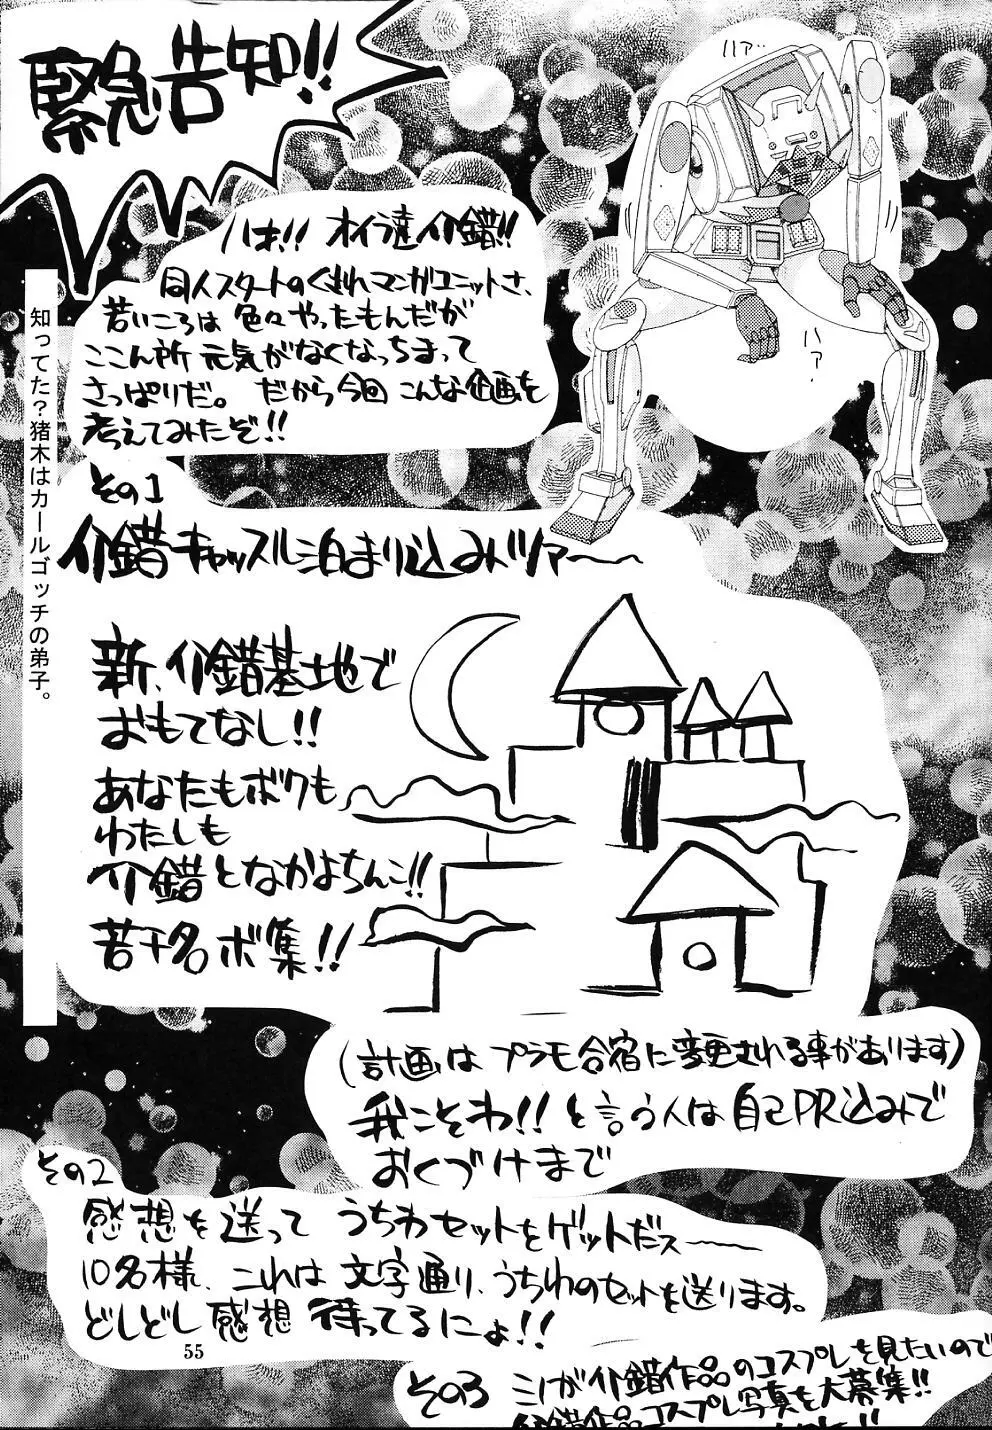 緊急告知!!
ハァ…
ハァ?
ハオ!! オイラ達介錯!!
同人スタートのくされマンガユニットさ、
若いころは色々やったもんだが
ここん所元気がなくなっちまって
さっぱりだ。だから今回こんな企画を
考えてみたぞ!!
知ってた?猪木はカールゴッチの弟子。
その1
介錯キャッスル泊まり込みバツァー〜
新、介錯基地で
おもてなし!!
あなたもボクも
わたしも
介錯となかよちんこ!!
若干名ボ集!!
(計画はプラモ合宿に変更される事があります)
我こそわ!!と言う人は自己PR込みで
おくづけまで
その2
感想を送って うちわセットをゲットだス〜
10名様、これは文字通り、うちわのセットを送ります。
どしどし感想待ってるにょ!!
55
その3 ミンが介錯作品のコスプレを見たいので
介錯作品コスプレ写真を大募集!!